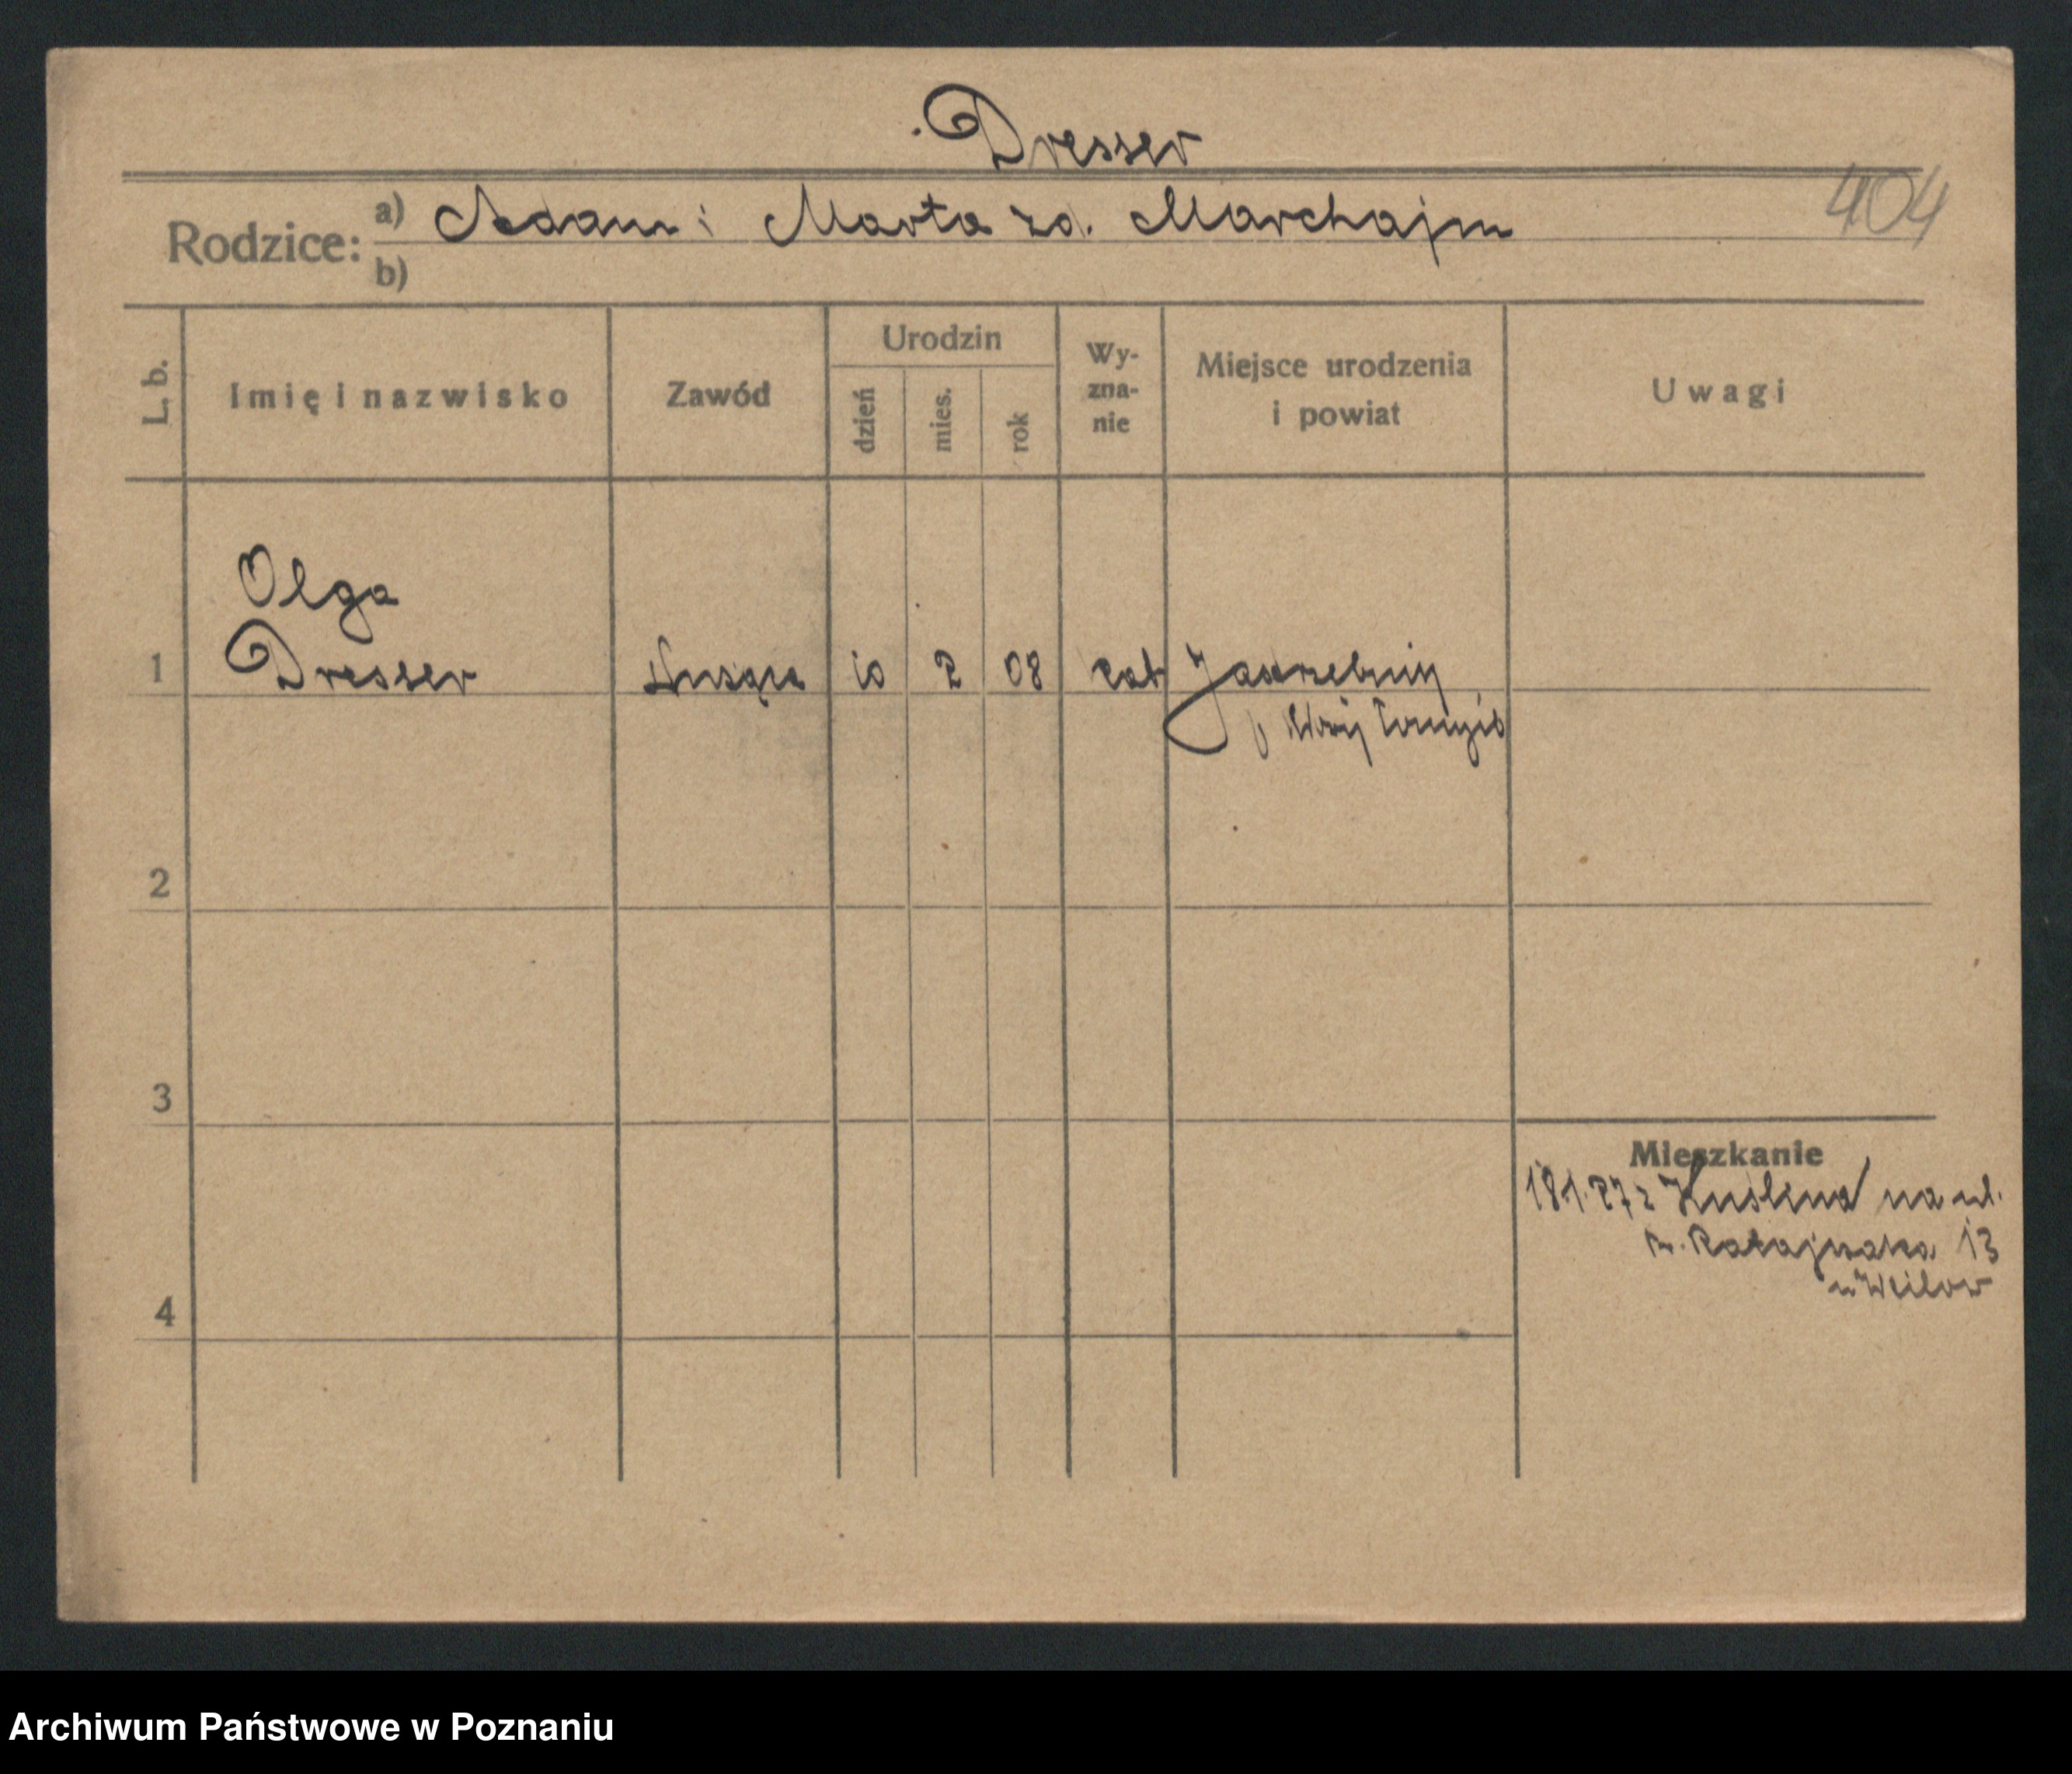 Dresser
404
Rodzice: a) Adam i Marta zd. Marchajm
b)
L. b.
Imię i nazwisko
Zawód
Urodzin
dzień
mies.
rok
Wy-
zna-
nie
Miejsce urodzenia
i powiat
Uwagi
Olga
1 Dresser służąca 10 2 08 kat
2
3
Mieszkanie
18.1.27 z Kuślina na ul.
Ratajczaka 13
4
Archiwum Państwowe w Poznaniu